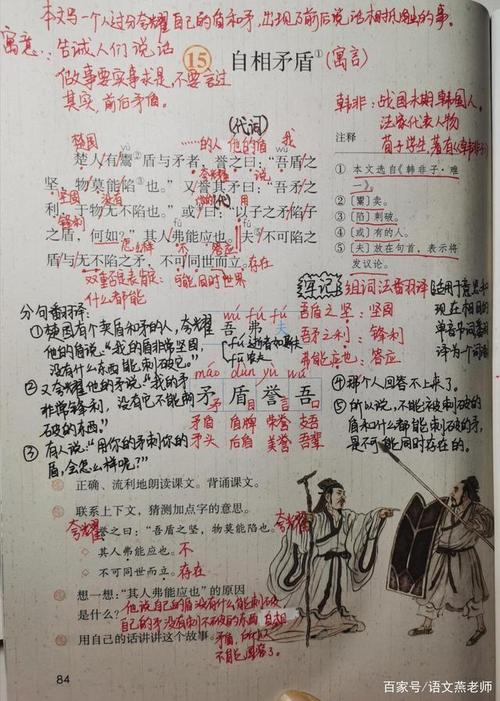 本文写一个人过分夸耀自己的盾和矛,出现了前后说话相抵触的事。
寓意:告诫人们说话
做事要实事求是,不要言过
其实,前后矛盾。
15 自相矛盾① (寓言)
韩非:战国末期韩国人。
法家代表人物
荀子学生,著有《韩非子》
(代词)
楚国 ……的人 他的盾 我
yù wú
楚人有鬻②盾与矛者,誉之曰:“吾盾之
夸耀 说
坚,物莫能陷③也。”又誉其矛曰:“吾矛之
坚固 没有 用
利,于物无不陷也。”或④曰:“以子之矛陷子
锋利 fú fú
之盾,何如?”其人弗能应也。夫⑤不可陷之
怎么样 不 答应
盾与无不陷之矛,不可同世而立。存在
双重否定表肯定: 可能同时世界
什么都能
注释
① 本文选自《韩非子·难
一》。
② 〔鬻〕卖。
③ 〔陷〕刺破。
④ 〔或〕有的人。
⑤ 〔夫〕放在句首,表示将
发议论。
分句番羽译:
①楚国有个卖盾和矛的人,夸耀
他的盾说:“我的盾非常坚固,
什么东西都能刺破它。”
②又夸耀他的矛说:“我的矛
非常锋利,没有它不能刺
破的东西。”
③有人说:“用你的矛刺你的
盾,会怎么样呢?”
牢记 组词法番羽译
吾盾之坚:坚固
吾矛之利:锋利
弗能应也:答应
适用于意思和
现在相同的
单音节词番羽
译为一个词
wú fú fú
吾 弗 夫
máo dùn yù wú
矛 盾 誉 吾
矛盾 盾牌 荣誉 支吾
矛头 后盾 美誉 吾辈
④那个人回答不上来了。
⑤所以说,不能被刺破的
盾和什么都能刺破的矛,
是不可能同时存在的。
正确、流利地朗读课文。背诵课文。
联系上下文,猜测加点字的意思。
夸耀
誉之曰:“吾盾之坚,物莫能陷也。”
其人弗能应也。不
不可同世而立。存在
想一想:“其人弗能应也”的原因
是什么? 他说自己的盾没有什么能刺破
自己的矛没有刺不破的东西 自相
用自己的话讲讲这个故事。 矛盾,所以
不能回答了。
84
百家号/语文燕老师